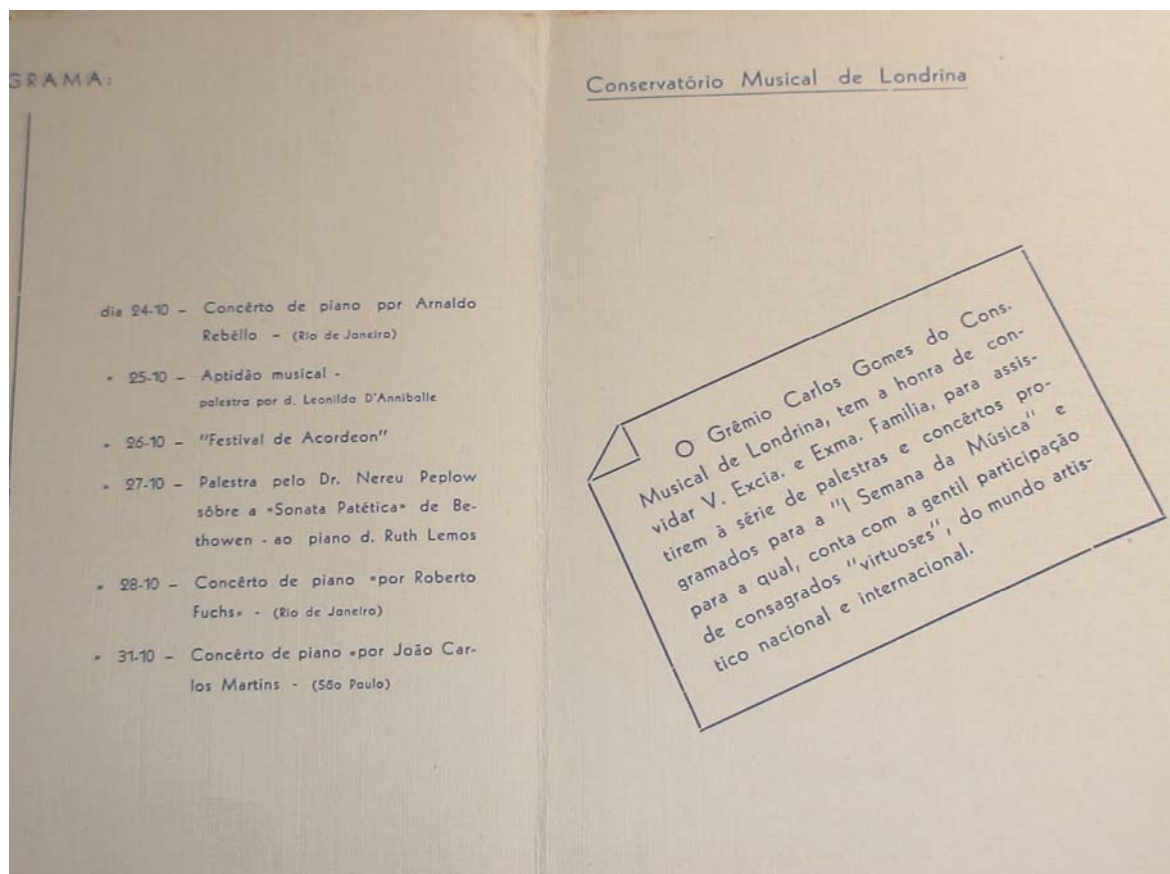 GRAMA:
dia 24-10 – Concêrto de piano por Arnaldo
Rebêllo – (Rio de Janeiro)
" 25-10 – Aptidão musical -
palestra por d. Leonilda D'Anniballe
" 26-10 – "Festival de Acordeon"
" 27-10 – Palestra pelo Dr. Nereu Peplow
sôbre a «Sonata Patética» de Be-
thowen - ao piano d. Ruth Lemos
" 28-10 – Concêrto de piano «por Roberto
Fuchs» - (Rio de Janeiro)
" 31-10 – Concêrto de piano «por João Car-
los Martins - (São Paulo)
Conservatório Musical de Londrina
O Grêmio Carlos Gomes do Cons.
Musical de Londrina, tem a honra de con-
vidar V. Excia. e Exma. Familia, para assis-
tirem à série de palestras e concêrtos pro-
gramados para a "I Semana da Música" e
para a qual, conta com a gentil participação
de consagrados "virtuoses", do mundo artis-
tico nacional e internacional.